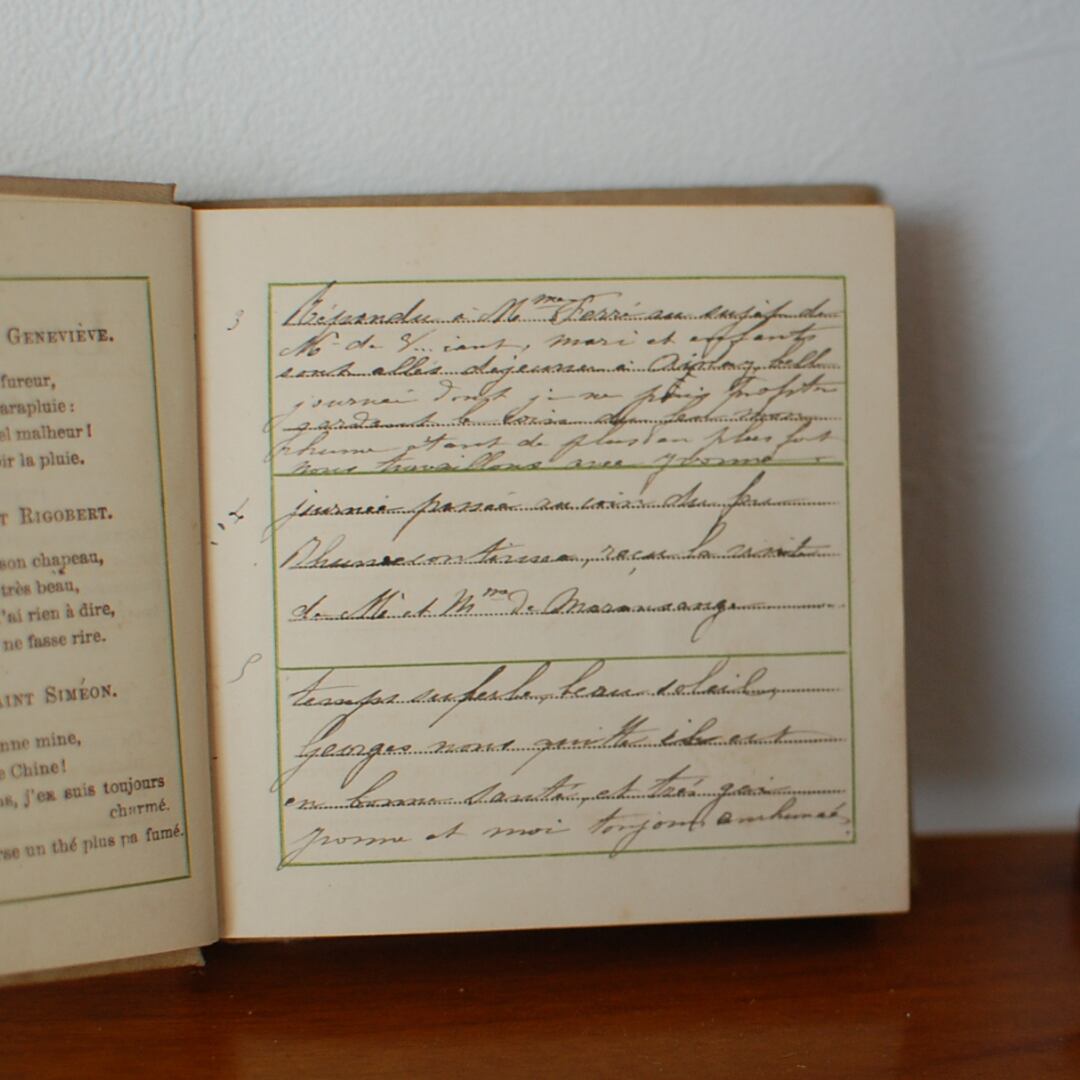 GENEVIÈVE.
fureur,
arapluie :
el malheur !
oir la pluie.
T RIGOBERT.
son chapeau,
très beau,
'ai rien à dire,
ne fasse rire.
AINT SIMÉON.
nne mine,
e Chine !
ns, j'en suis toujours
charmé.
rse un thé plus pa fumé.
3
Répondu à Mme Ferré au sujet de
Mr de mari et enfants
sont allés déjeuner à belle
journée dont je ne puis profiter
gardant le coin du feu mon
rhume étant de plus en plus fort
nous travaillons avec Yvonne
4
journée passée au coin du feu
Rhume continue, reçu la visite
de Mr et Mme de
5
temps superbe, beau soleil,
Georges nous quitte il est
en bonne santé, et très gai
Yvonne et moi toujours enrhumées